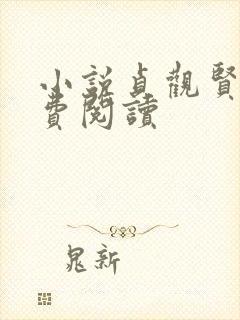 小說貞觀賢
費閱讀
晁新